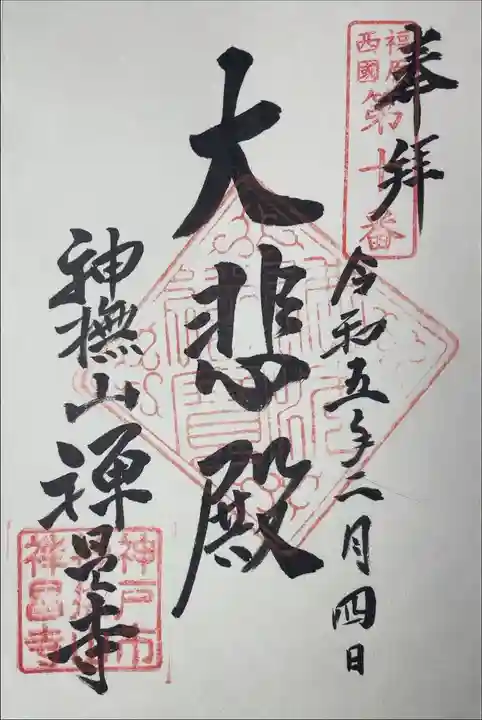 奉拝
福原
西國
第十番
令和五年二月四日
大悲殿
神撫山禅昌寺
神戸市
禅昌寺